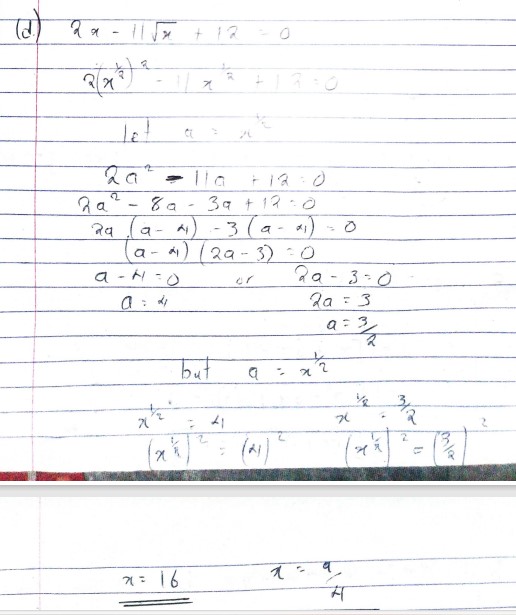 (d) 2x - 11√x + 12 = 0
2(x^½)² - 11x^½ + 12 = 0
let a = x^½
2a² - 11a + 12 = 0
2a² - 8a - 3a + 12 = 0
2a (a - 4) - 3 (a - 4) = 0
(a - 4) (2a - 3) = 0
a - 4 = 0 or 2a - 3 = 0
a = 4 2a = 3
a = 3/2
but a = x^½
x^½ = 4 x^½ = 3/2
(x^½)² = (4)² (x^½)² = (3/2)²
x = 16 x = 9/4